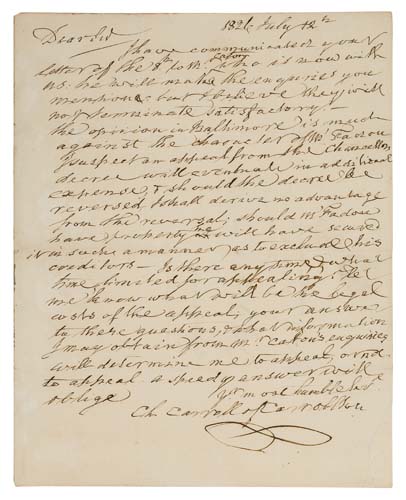 1826 July 12th
Dear Sir
I have communicated your
letter of the 8th to Mr Caton who is now with
us. he will make the enquiries you
mention, but I believe they will
not terminate satisfactory—
the opinion in Baltimore is much
against the character of Mr Fadou
I suspect an appeal from the Chancellors
decree will eventuate in additional
expense, & should the decree be
reversed I shall derive no advantage
from the reversal; should Mr Fadou
have property he will have secured
it in such a manner as to exclude his
creditors— Is there any time & what
time limited for appealing? let
me know what will be the legal
costs of the appeal; your answer
to these questions, & what information
I may obtain from Mr Caton's enquiries
will determine me to appeal, or not
to appeal. a speedy answer will
oblige Yr most humble Svt.
Ch. Carroll of Carrollton